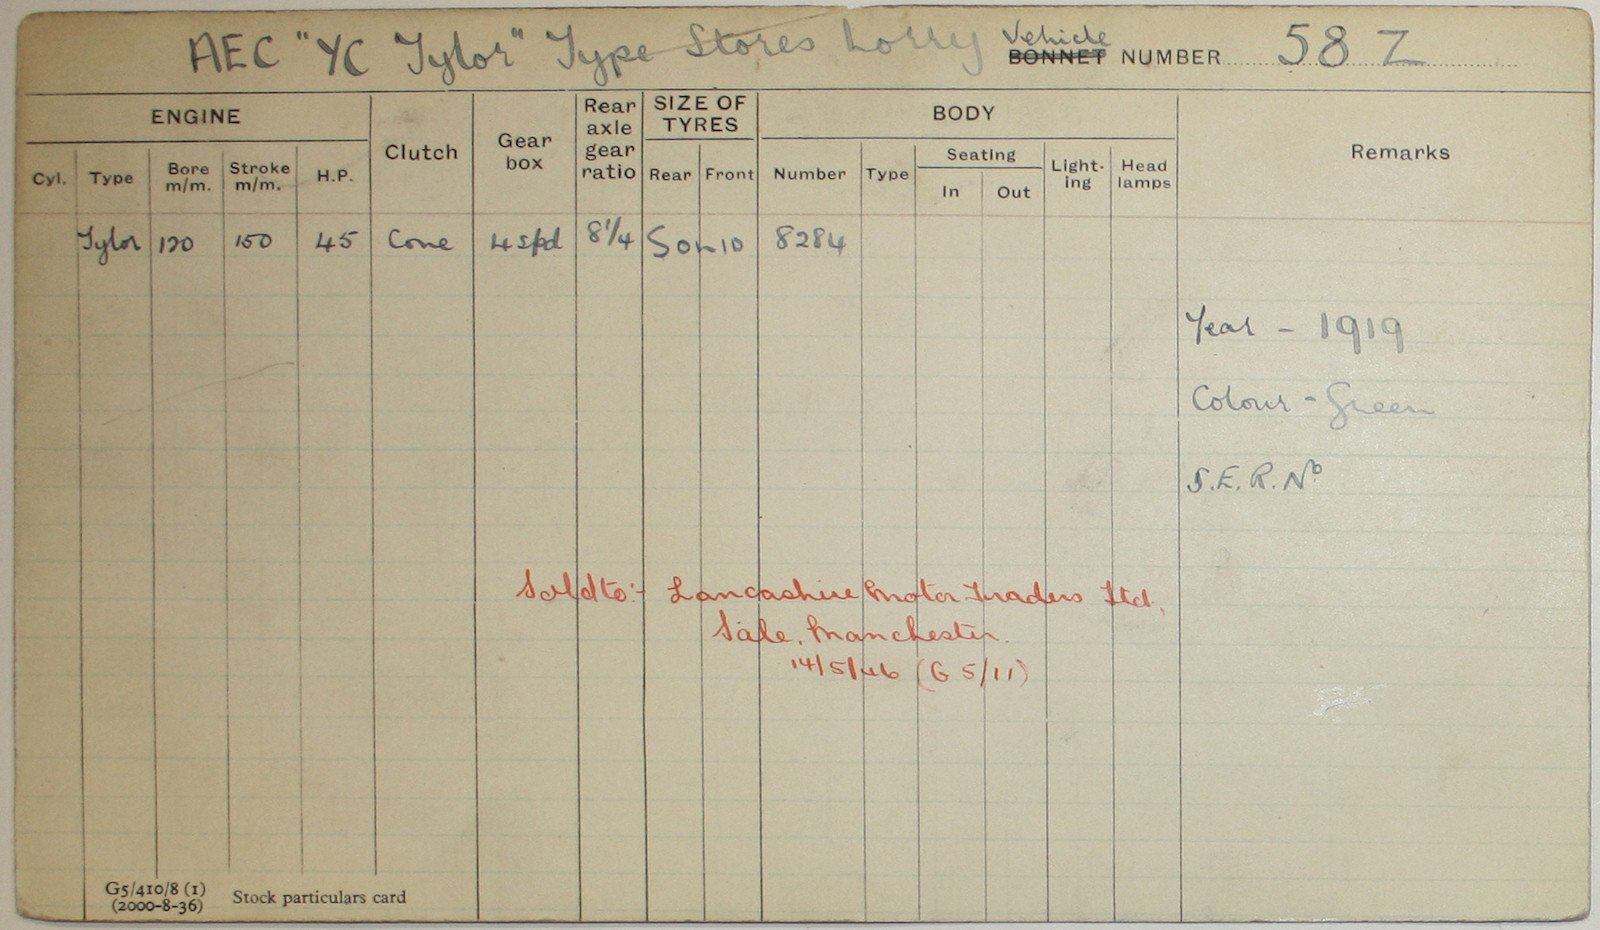 AEC "YC Tylor" Type Stores Lorry Vehicle BONNET NUMBER 58 Z
ENGINE Clutch Gear box Rear axle gear ratio SIZE OF TYRES BODY Remarks
Cyl. Type Bore m/m. Stroke m/m. H.P. Rear Front Number Type Seating In Out Light-ing Head lamps
Tylor 120 150 45 Cone 4 spd 8¼ Son 10 8284
Year - 1919
Colour - Green
S.E.R. No
Sold to:- Lancashire Motor Traders Ltd.
Sale. Manchester.
14/5/46 (G 5/11)
G5/410/8 (1)
(2000-8-36) Stock particulars card